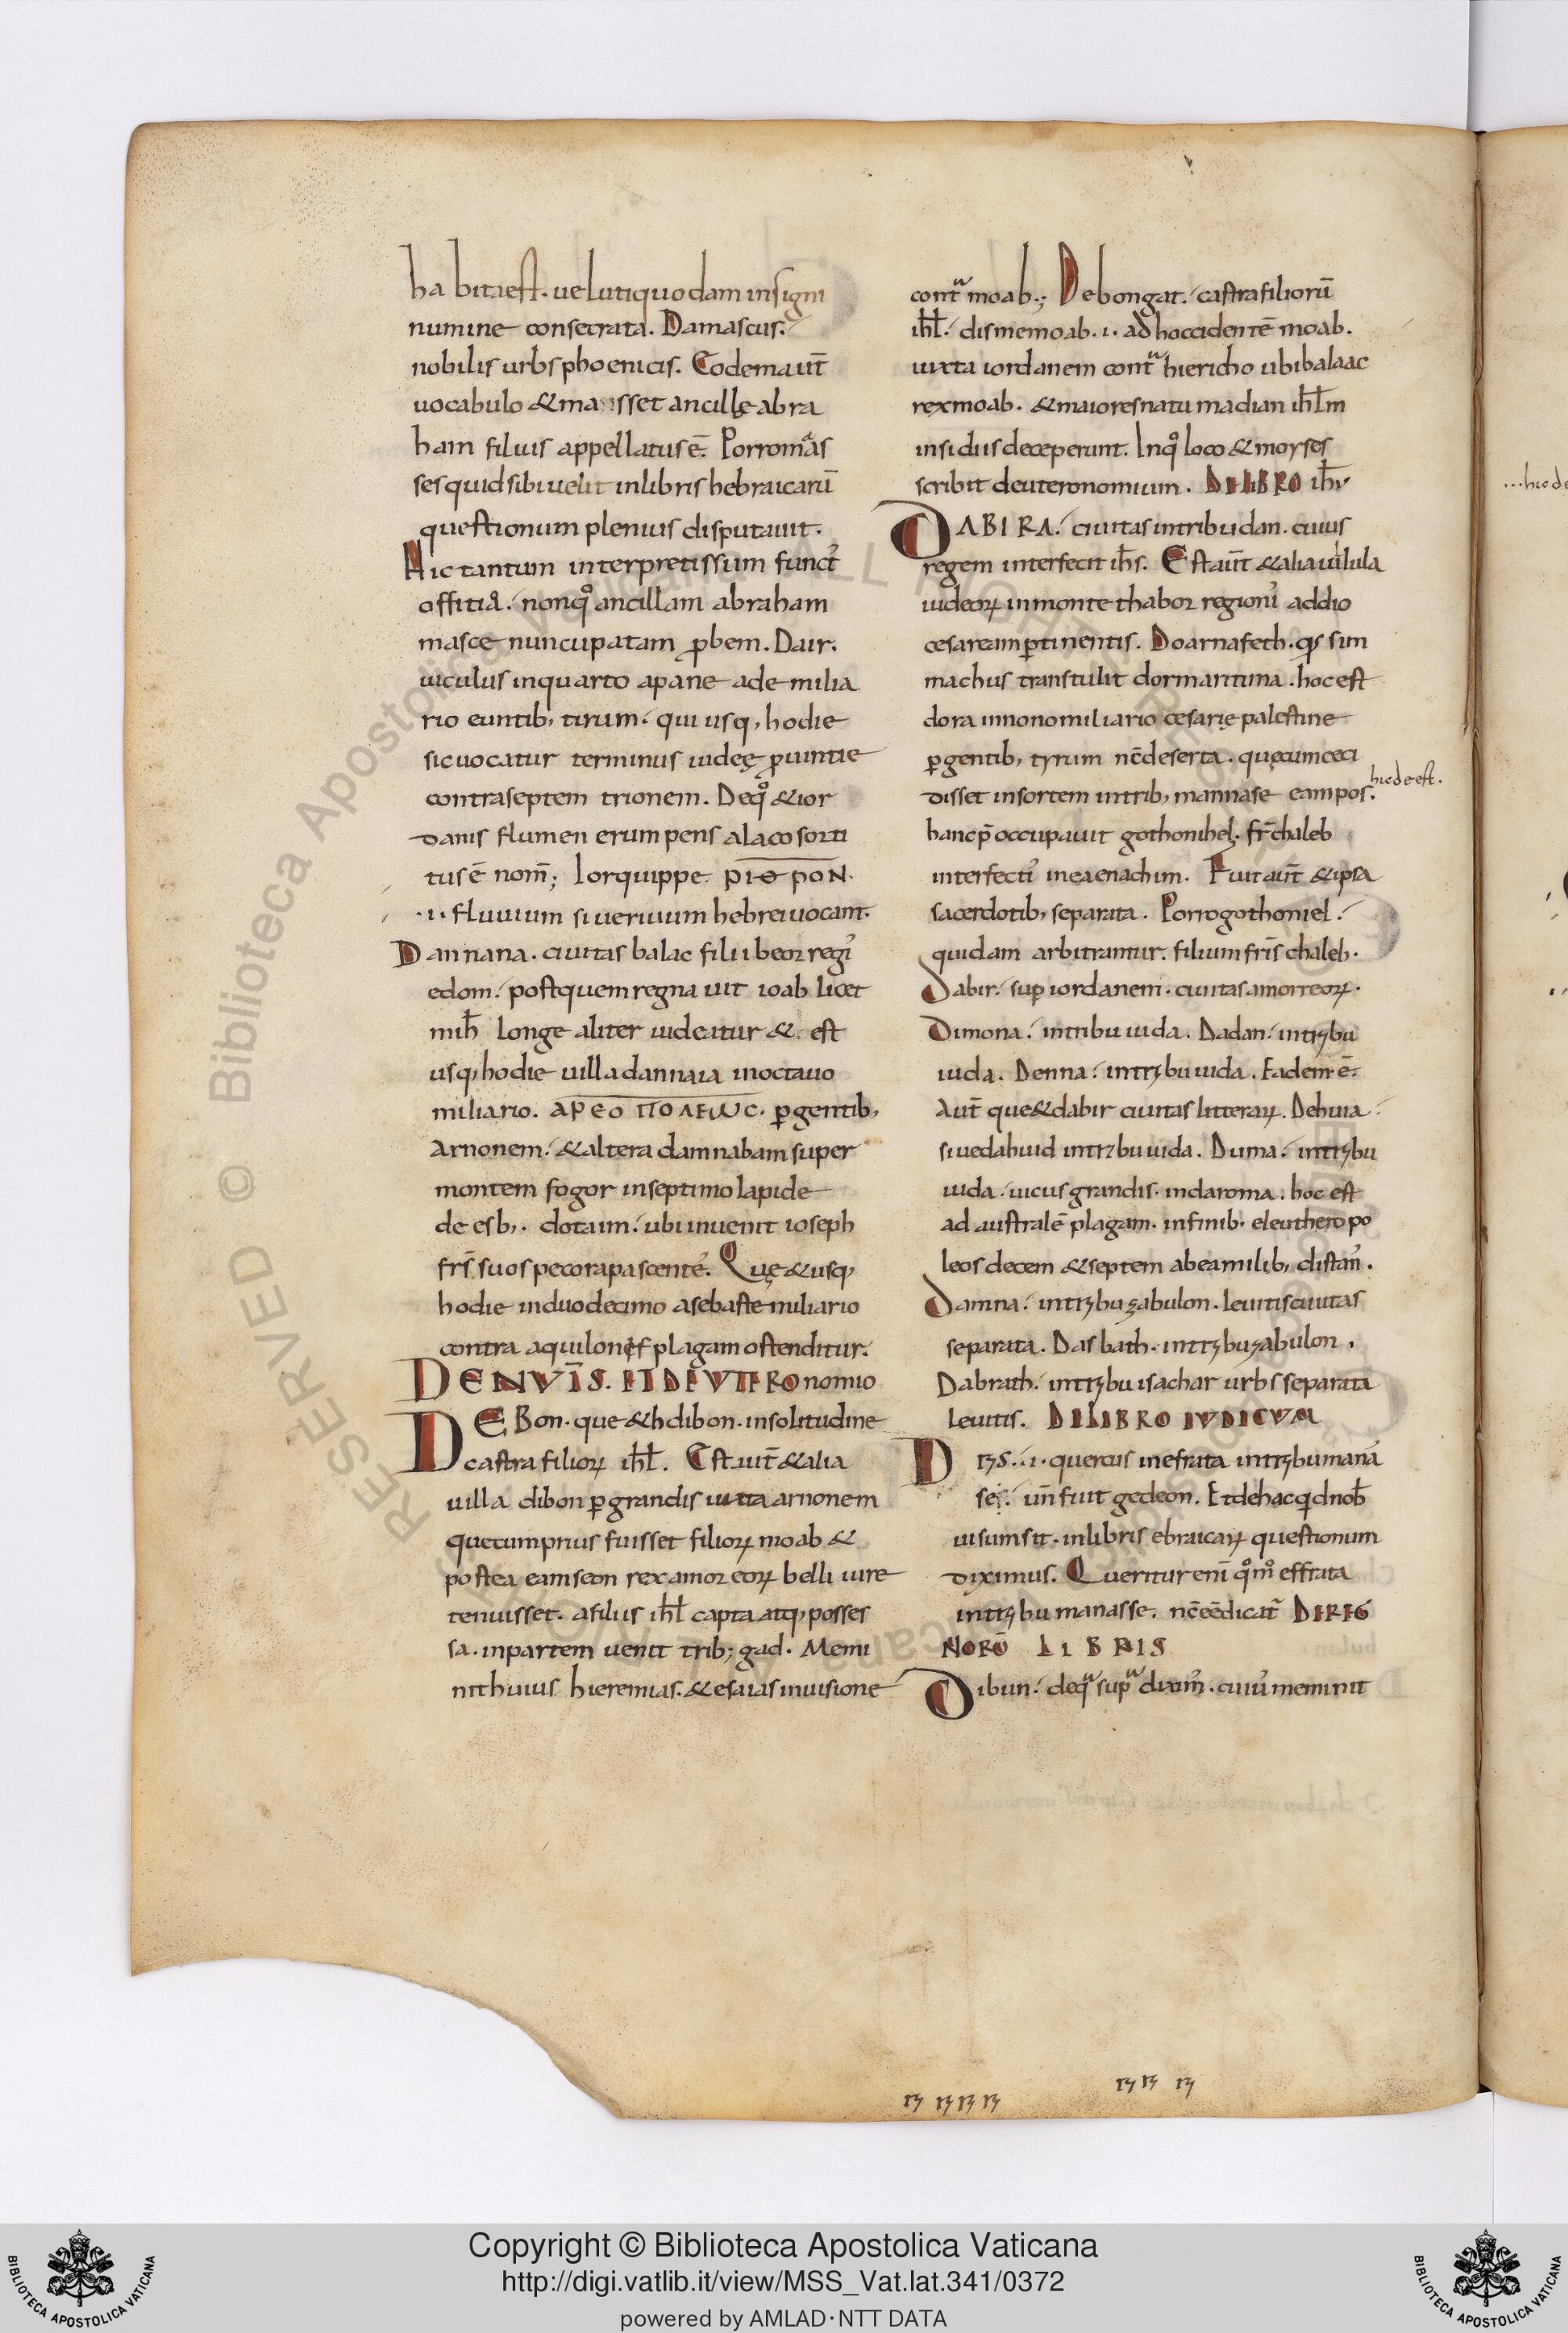 habitaest. uelutiquodam insigni
numine consecrata. Damascus.
nobilis urbs phoenicis. Eodemaut̄
uocabulo &masisset ancillę abra
ham filius appellatus ē. Porromas
ses quid sibi uelit inlibris hebraicarū
questionum plenius disputauit.
Hic tantum interpretis sum funct
offitia. nonqͦ ancillam abraham
masce nuncupatam ꝓbem. Dair.
uiculus inquarto apane ademilia
rio euntib, tirum. qui usq, hodie
sic uocatur terminus iudeę ꝓuintie
contraseptem trionem. Deqͦ &ior
danis flumen erumpens alaco sorti
tus ē nom̄; Iorquippe. ΡΙΘΡΟΝ.
.i. fluuium siue riuum hebrei uocant.
Dannana. ciuitas balac filii beor regi
edom. postquem regnauit ioab licet
mih̄ longe aliter uideatur & est
usq, hodie uilla dannaia inoctauo
miliario. ΑΡΕΟ ΠΟΛΕωC. ꝑgentib,
Arnonem. &altera damnabam super
montem fogor inseptimo lapide
de esb,. dotaim. ubi inuenit ioseph
frs̄ suos pecora pascente. Quę &usq,
hodie induodecimo asebaste miliario
contra aquilonis plagam ostenditur.
DE NVĪS. ET DEVTERO nomio
DEBon. que &hdibon. insolitudine
castra filioꝝ ihl̄. Est aut̄ &alia
uilla dibon ꝑgrandis iuxta arnonem
que cum prius fuisset filioꝝ moab &
postea eam seon rex amoreoꝝ belli iure
tenuisset. afiliis ihl̄ capta atq, posses
sa. inpartem uenit trib; gad. Memi
nit huius hieremias. &esaias inuisione
contͣ moab.; Debongat. castra filiorū
ihl̄. dismemoab. i. ad hoccidentē moab.
iuxta iordanem contͣ hiericho ubi balaac
rex moab. &maiores natu madian ihl̄m
insidiis deceperunt. Inqͦ loco &moyses
scribit deuteronomium. DE LIBRO ih̄v
DABIRA. ciuitas intribu dan. cuius
regem interfecit ih̄s. Est aut̄ &alia uilula
iudeoꝝ inmonte thabor regioni addio
cesaream ꝑtinentis. Doarnafeth. qs sim
machus transtulit dor maritima. hoc est
dora innono miliario cesarię palestine
ꝑgentib, tyrum nc̄ deserta. quęcum ceci
disset insortem intrib, mannase eam pos.
hic deest.
hanc p̄ occupauit gothonihel. fr̄ chaleb
interfecti inea enachim. Fuit aut̄ &ipsa
sacerdotib, separata. Porro gothoniel.
quidam arbitrantur. filium fris̄ chaleb.
Dabir. sup iordanem. ciuitas amorreoꝝ.
Dimona. intribu iuda. Dadan. intribu
iuda. Denna. intribu iuda. Eadem ē.
Aut̄ que&dabir ciuitas litteraꝝ. Dehuia.
siue dahuid intribu iuda. Duma. intribu
iuda. uicus grandis. indaroma. hoc est
ad australē plagam. infinib. eleuthero po
leos decem &septem abea milib, distan.
Damna. intribu zabulon. leuitis ciuitas
separata. Dasbath. intribu zabulon.
Dabrath. intribu isachar urbs separata
leuitis. DE LIBRO IVDICVM
DRIS. .i. quercus inefrata intribu mana
se. un̄ fuit gedeon. Et de hac qd nob̄
uisum sit. inlibris ebraicaꝝ questionum
diximus. Queritur eni qͦmͦ effrata
intribu manasse. nc̄ eē dicat̄ DE REG
NORŪ LIBRIS
Dibun. deqͣ supͣ diximˀ. cuiˀ meminit
Copyright © Biblioteca Apostolica Vaticana
http://digi.vatlib.it/view/MSS_Vat.lat.341/0372
powered by AMLAD·NTT DATA